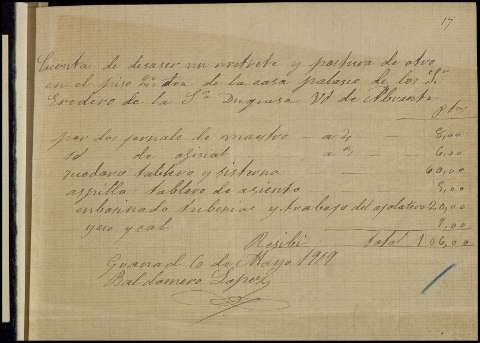 17
Cuenta de desaser un retrete y postura de otro
en el piso 2º dra de la casa palasio de los Sr
Erederos de la Sra Duquesa Vd de Abrantes
ptas
por dos jornales de maestro — a 4 — — 8,00
id de ofisial — a 3 — — 6,00
ynodoro tablero y sisterna — 60,00
tablero de asiento — 5,00
enbarinado tuberias y trabajo del ojalatero 20,00
yeso y cal
Resibi Total 106,00
Granada 6 de Mayo 1919
Baldomero Lopez